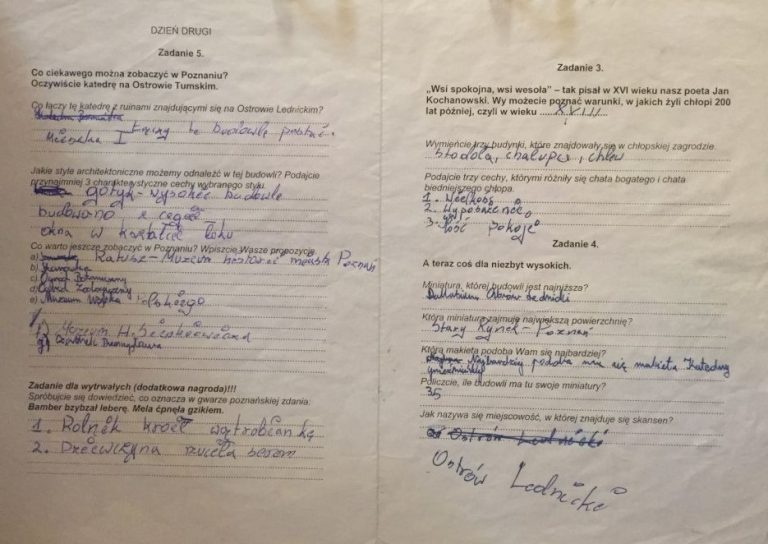 DZIEŃ DRUGI
Zadanie 5.
Co ciekawego można zobaczyć w Poznaniu?
Oczywiście katedrę na Ostrowie Tumskim.
Co łączy tę katedrę z ruinami znajdującymi się na Ostrowie Lednickim?
te budowle
I
Jakie style architektoniczne możemy odnaleźć w tej budowli? Podajcie
przynajmniej 3 charakterystyczne cechy wybranego stylu.
gotyk - wysokie budowle
budowano z cegieł
okna w kształcie łuku
Co warto jeszcze zobaczyć w Poznaniu? Wpiszcie Wasze propozycje.
a) Ratusz - Muzeum historii miasta Poznań
b)
c) Ogród Botaniczny
d) Ogród Zoologiczny
e) Muzeum Wojska
f) H. Sienkiewicza
g) Dzwonek
Zadanie dla wytrwałych (dodatkowa nagroda)!!!
Spróbujcie się dowiedzieć, co oznacza w gwarze poznańskiej zdania:
Bamber bzybzał leberę. Mela ćpnęła gzikiem.
1. Rolnik kroił wątrobiankę
2. Dziewczyna rzuciła serem
Zadanie 3.
„Wsi spokojna, wsi wesoła” – tak pisał w XVI wieku nasz poeta Jan
Kochanowski. Wy możecie poznać warunki, w jakich żyli chłopi 200
lat później, czyli w wieku XVIII
Wymieńcie trzy budynki, które znajdowały się w chłopskiej zagrodzie.
stodoła, chałupa, chlew
Podajcie trzy cechy, którymi różniły się chata bogatego i chata
biedniejszego chłopa.
1. Wielkość
2. Wyposażenie
3. Ilość pokoji
Zadanie 4.
A teraz coś dla niezbyt wysokich.
Miniatura, której budowli jest najniższa?
Lednicki
Która miniatura zajmuje największą powierzchnię?
Stary Rynek - Poznań
Która makieta podoba Wam się najbardziej?
Najbardziej podoba nam się makieta Katedry
Policzcie, ile budowli ma tu swoje miniatury?
35
Jak nazywa się miejscowość, w której znajduje się skansen?
Ostrów Lednicki
Ostrów Lednicki